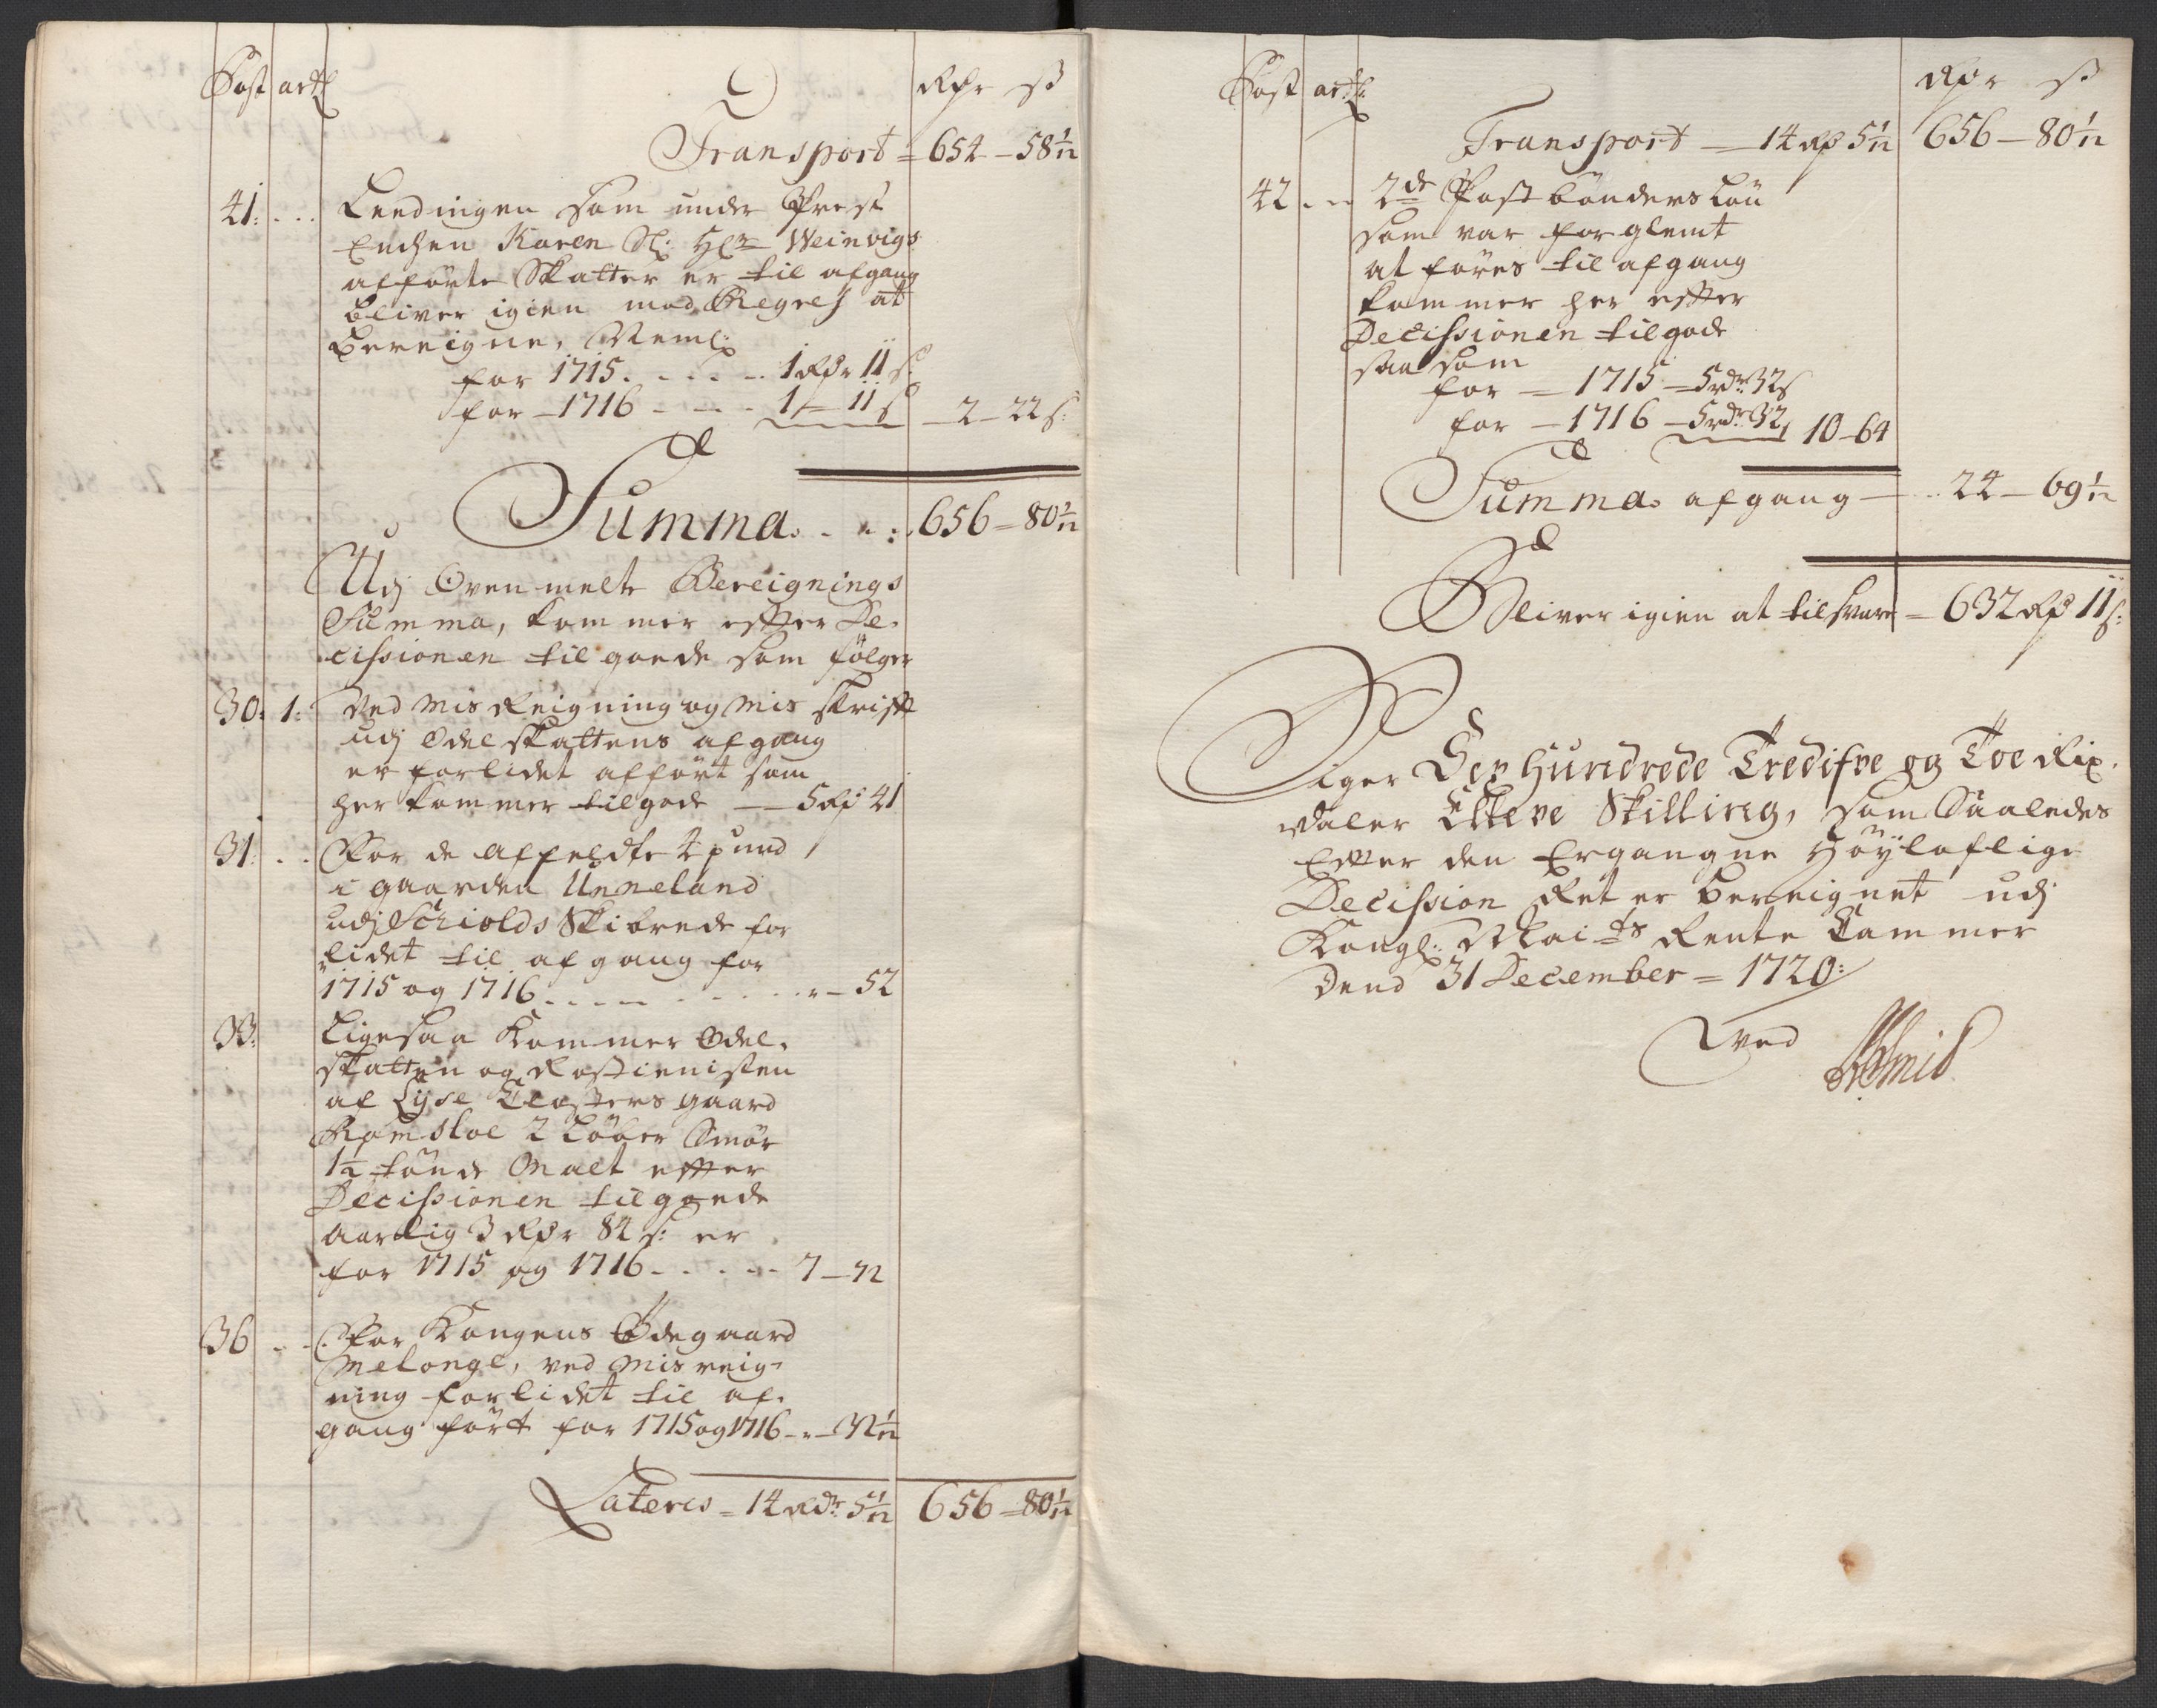 Post artl Rdr ß
Transport = 654 - 58 1/12
41: . . . Leedingen som under Prest
Enchen Karen Sl: Hr: Weinvigs
afförte Skatter er til afgang
bliver igien mod Regres at
bereigne, Neml:
for 1715. . . . . . 1 Rdr 11 s:
for - 1716 - - - - 1 = 11 s - 2 - 22 s:
Summa. . . . : . 656 = 80 1/12
Udj Ovenmelte Bereignings
Summa, kommer efter De-
cissionen til goede som fölger
30: 1: Ved Misreigning og Misskrift
udj Odelskattens afgang
er forlidet afført som
her kommer tilgode — 5 Rd 41
31: . . For de affeldte 4 pund
i gaarden Unneland
udj Schiolds Skibrede for
lidet til afgang for
1715 og 1716 . . . . . . . . . " - 52
33: Ligesaa Kommer Odel-
skatten og Rostienisten
af Lyse Closters gaard
Ramsloe 2 Löber Smör
1 1/2 tönde Malt efter
Decissionen tilgoede
aarlig 3 Rdr 84 s: er
for 1715 og 1716 - . . . - 7 - 72
36 . . For Kongens Ödegaard
Melonge, ved Misreig-
ning forlidet til af-
gang fört for 1715 og 1716 - " - 32 1/12
Lateris = 14 Rdr: 5 1/12 656 = 80 1/12
Post artl: Rdr ß
Transport — 14 Rd 5 1/12 656 - 80 1/12
42 . . . 2de Postbönders Lön
som var forglemt
at føres til afgang
kommer her efter
Decissionen tilgode
saa som
for — 1715 - 5 rdr 32 s
for — 1716 - 5 rdr 32, 10 - 64
Summa. afgang — . . 24 - 69 1/12
Bliver igien at tilsvare = 632 Rd 11 s:
Siger Sex Hundrede Tredifve og Toe Rix-
daler Elleve Skilling, som Saaledes
Efter den Ergangne Höylaflige
Decission Ret er bereignet udj
Kongl: Mai:ts Rente Cammer
Dend 31 December = 1720:
Ved
Smid